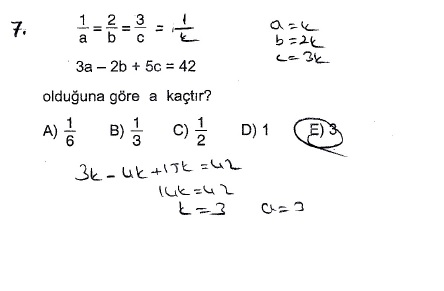 7. 1/a = 2/b = 3/c = 1/k
a = k
b = 2k
c = 3k
3a – 2b + 5c = 42
olduğuna göre a kaçtır?
A) 1/6 B) 1/3 C) 1/2 D) 1 E) 3
3k - 4k + 15k = 42
14k = 42
k = 3 a = 3